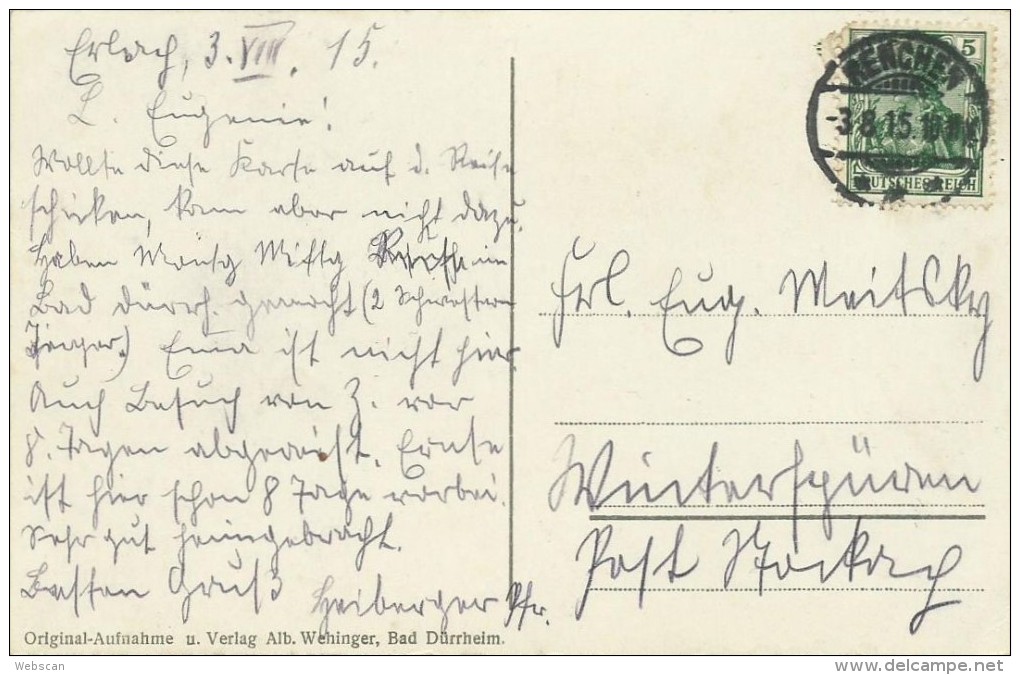 Erlach, 3. VIII. 15.
L. Eugenie!
Wollte diese Karte auf d. Reise
schicken, kam aber nicht dazu.
Haben Montg Mittg Besuche im
Bad Dürrh. gemacht (2 Schwestern
Jäger.) Ema ist nicht hier.
Auch Besuch von Z. vor
8. Tagen abgereist. Ernte
ist hier schon 8 Tage vorbei.
Sehr gut heimgebracht.
Besten Gruß Heiberger Pfr.
Original-Aufnahme u. Verlag Alb. Wehinger, Bad Dürrheim.
5
RENCHEN
-3.8.15.10
DEUTSCHES REICH
Frl. Eug. Meitsky
Winterspüren
Post Stockach
Webscan
delcampe.net